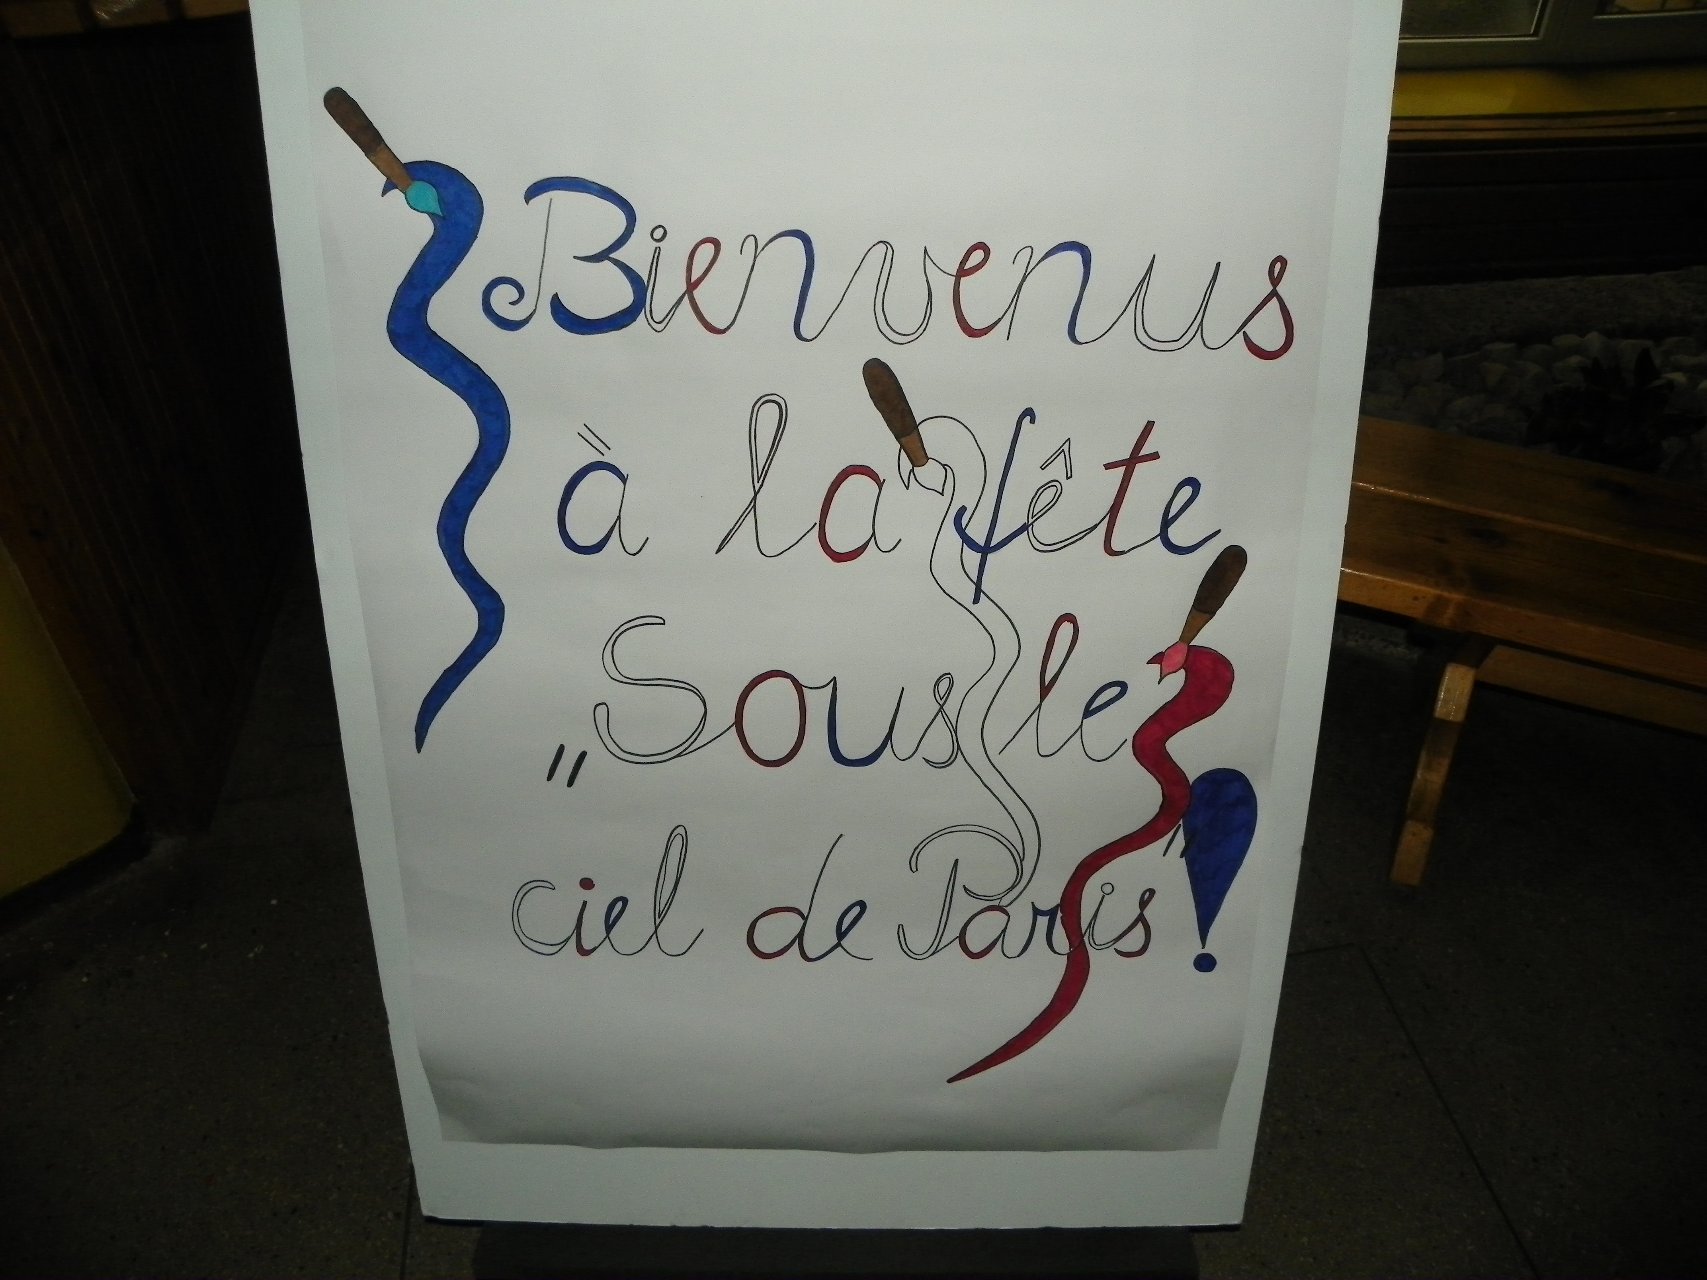 Bienvenus
à la fête
„Sous le
ciel de Paris"!